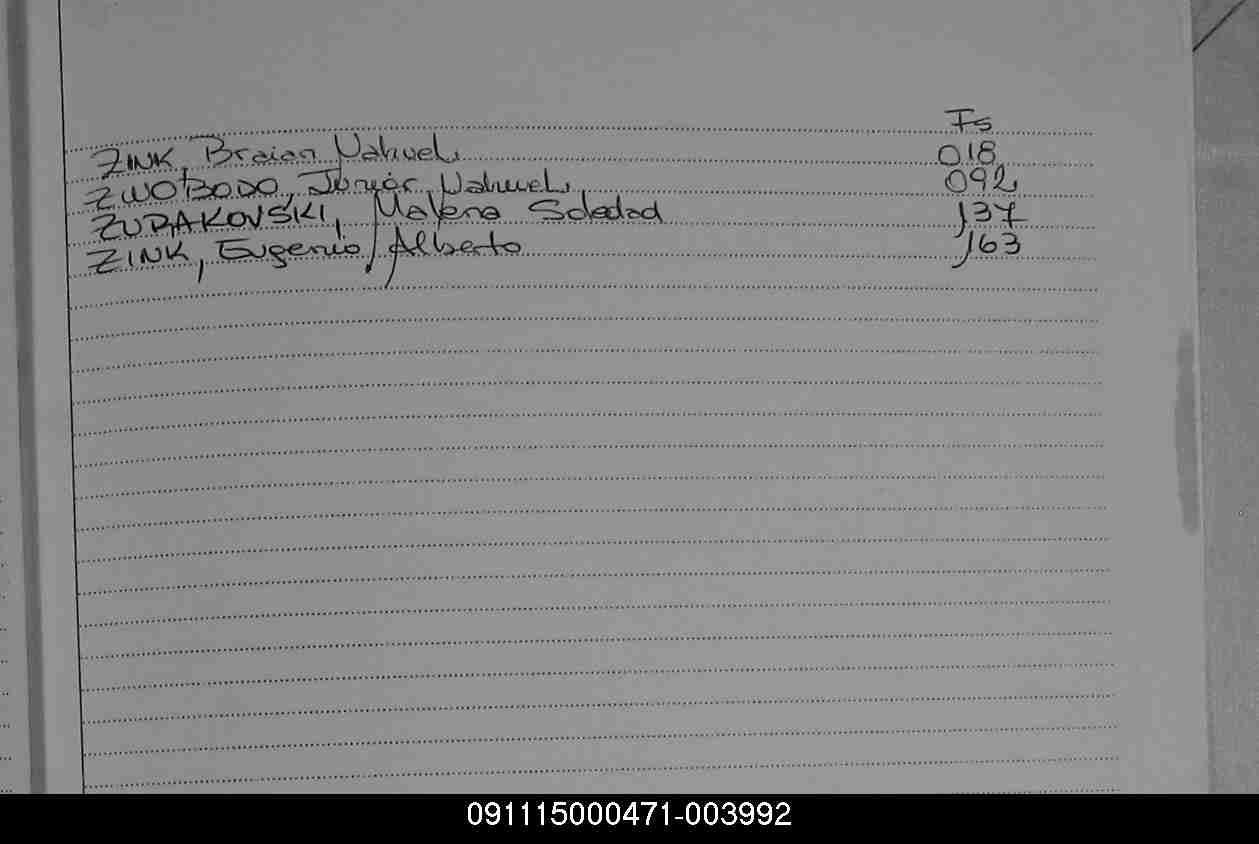 Fs
ZINK, Braian Nahuel 018
ZWOBODO, Junior Nahuel 092
ZURAKOVSKI, Malena Soledad 137
ZINK, Eugenio Alberto 163
091115000471-003992